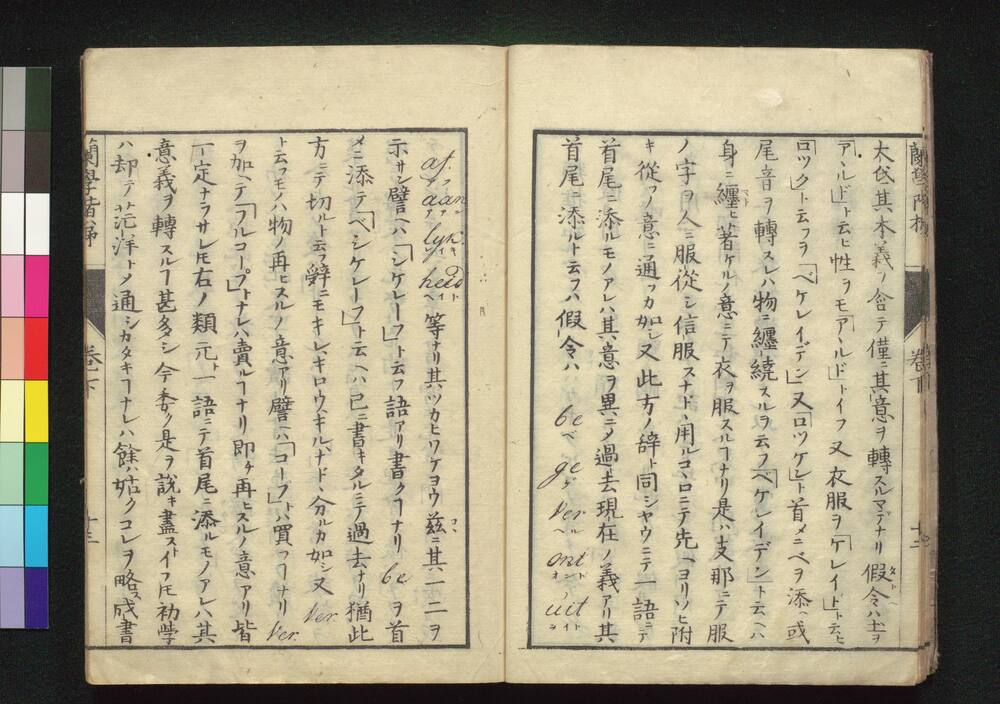 大氐其本義ノ含テ僅ニ其意ヲ轉スルマデナリ假令ハ土ヲ
「アールド」ト云ヒ性ヲモ「アールド」トイフ又衣服ヲ「ケレイト」ト云ヒ
「ロック」ト云フヲ「ベケレイデン」又「ロッケン」ト首メニベヲ添ヘ或
尾音ヲ轉スレハ物ニ纏ヒ繞スルヲ云フ「ベケレイデン」ト云ハヘハ
身ニ纏ヒ著ケルノ意ニテ衣ヲ服スルヿナリ是ハ支那ニテ服
ノ字ヲ人ニ服從シ信服スナド、用ルコヽロニテ先ヘヨリソヒ附
キ從フノ意ニ通フカ如シ又此方ノ辭ト同シヤウニテ一語ニテ
首尾ニ添ルモノアレハ其意ヲ異ニシ過去現在ノ義アリ其
首尾ニ添ルト云フハ假令ハ be ge ver ont uit
af. aan lyk. heid 等ナリ其ツカヒワケヨウ茲ニ其一二ヲ
示サン譬ヘハ「シケレーフ」ト云フ語アリ書クヿナリ be ヲ首
メニ添テ「ベシケレーフ」ト云ヘハ已ニ書キタルニテ過去ナリ猶此
方ニテ切ルト云フ辭ニモキレ、キロウ、キル、ナド、分ルカ如シ又 ver.
ト云フモノハ物ノ再ヒスルノ意アリ譬ヘハ「コープ」トハ買フヿナリ ver.
ヲ加ヘテ「フルコープ」トナレハ賣ルヿナリ即チ再ヒスルノ意アリ皆
一定ナラサレ𪜈右ノ類元ト一語ニテ首尾ニ添ルモノアレハ其
意義ヲ轉スルヿ甚多シ今委ク是ヲ説キ盡ストイフ𪜈初學
ハ却テ茫洋トノ通シカタキヿナレハ餘ハ姑クコレヲ略ス成書
蘭學階梯
卷下
十二
蘭學階梯
卷下
十三